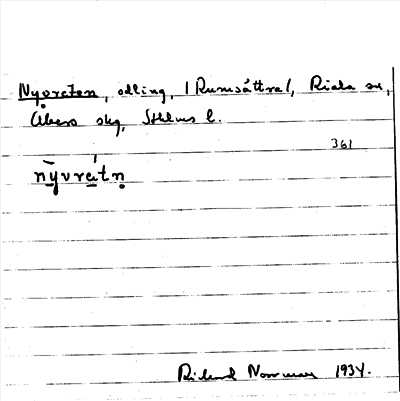 Nyvreten, odling, (Rumsättra), Riala sn,
Åkers skg, Sthlms l.
361
nȳvrétn̥
Rickard Norrman 1934.